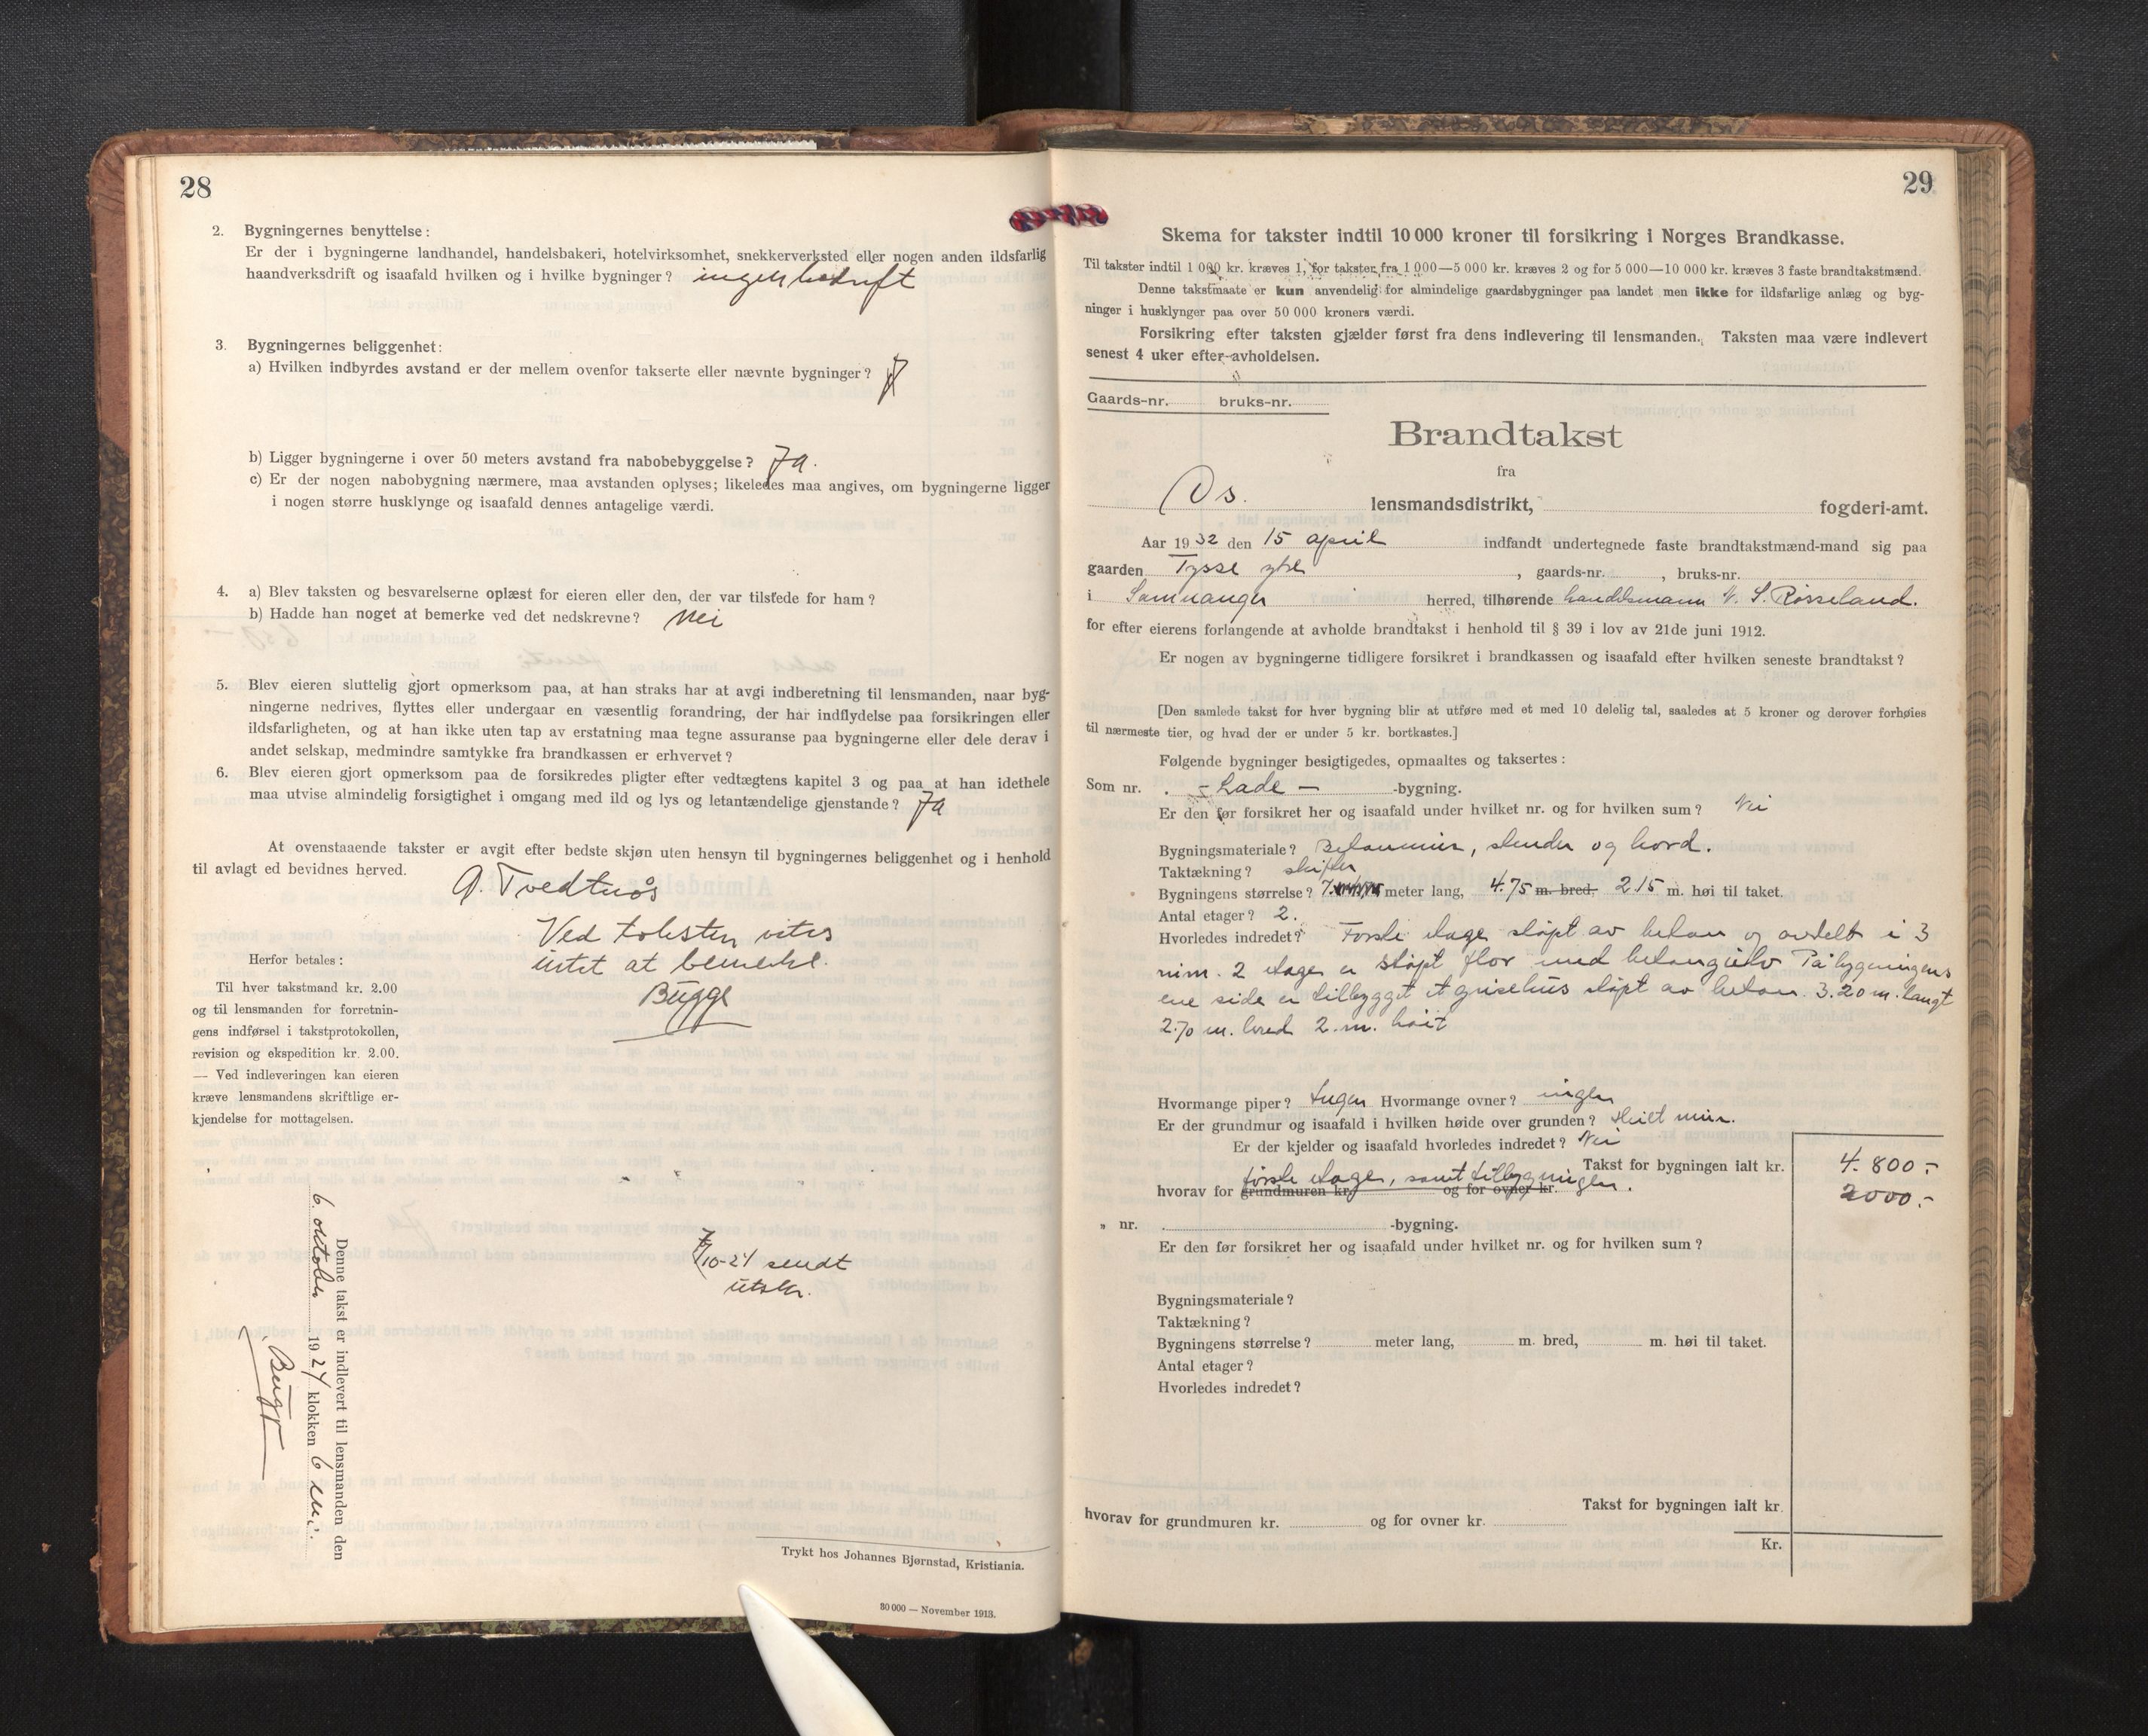 28
2. Bygningernes benyttelse:
Er der i bygningerne landhandel, handelsbakeri, hotelvirksomhet, snekkerverksted eller nogen anden ildsfarlig
haandverksdrift og isaafald hvilken og i hvilke bygninger? ingen bedrift
3. Bygningernes beliggenhet:
a) Hvilken indbyrdes avstand er der mellem ovenfor takserte eller nævnte bygninger?
b) Ligger bygningerne i over 50 meters avstand fra nabobebyggelse? Ja.
c) Er der nogen nabobygning nærmere, maa avstanden oplyses; likeledes maa angives, om bygningerne ligger
i nogen større husklynge og isaafald dennes antagelige værdi.
4. a) Blev taksten og besvarelserne oplæst for eieren eller den, der var tilstede for ham?
b) Hadde han noget at bemerke ved det nedskrevne? Nei
5. Blev eieren sluttelig gjort opmerksom paa, at han straks har at avgi indberetning til lensmanden, naar byg-
ningerne nedrives, flyttes eller undergaar en væsentlig forandring, der har indflydelse paa forsikringen eller
ildsfarligheten, og at han ikke uten tap av erstatning maa tegne assuranse paa bygningerne eller dele derav i
andet selskap, medmindre samtykke fra brandkassen er erhvervet?
6. Blev eieren gjort opmerksom paa de forsikredes pligter efter vedtægtens kapitel 3 og paa at han idethele
maa utvise almindelig forsigtighet i omgang med ild og lys og letantændelige gjenstande? Ja
At ovenstaaende takster er avgit efter bedste skjøn uten hensyn til bygningernes beliggenhet og i henhold
til avlagt ed bevidnes herved.
A. Tvedtnås
Ved taksten vites
intet at bemerke.
Bugge
Herfor betales:
Til hver takstmand kr. 2.00
og til lensmanden for forretnin-
gens indførsel i takstprotokollen,
revision og ekspedition kr. 2.00.
— Ved indleveringen kan eieren
kræve lensmandens skriftlige er-
kjendelse for mottagelsen.
Denne takst er indlevert til lensmanden den
6. oktober 1924 klokken 6 em.
Bugge
7/10-24 sendt
utskr.
Trykt hos Johannes Bjørnstad, Kristiania.
30 000 — November 1913.
29
Skema for takster indtil 10 000 kroner til forsikring i Norges Brandkasse.
Til takster indtil 1 000 kr. kræves 1, for takster fra 1 000—5 000 kr. kræves 2 og for 5 000—10 000 kr. kræves 3 faste brandtakstmænd.
Denne takstmaate er kun anvendelig for almindelige gaardsbygninger paa landet men ikke for ildsfarlige anlæg og byg-
ninger i husklynger paa over 50 000 kroners værdi.
Forsikring efter taksten gjælder først fra dens indlevering til lensmanden. Taksten maa være indlevert
senest 4 uker efter avholdelsen.
Gaards-nr. bruks-nr.
Brandtakst
fra
Os. lensmandsdistrikt, fogderi-amt.
Aar 1932 den 15 april indfandt undertegnede faste brandtakstmænd-mand sig paa
gaarden Tysse ytre, gaards-nr. , bruks-nr.
i Samnanger herred, tilhørende handelsmann N. S. Røsseland.
for efter eierens forlangende at avholde brandtakst i henhold til § 39 i lov av 21de juni 1912.
Er nogen av bygningerne tidligere forsikret i brandkassen og isaafald efter hvilken seneste brandtakst?
[Den samlede takst for hver bygning blir at utføre med et med 10 delelig tal, saaledes at 5 kroner og derover forhøies
til nærmeste tier, og hvad der er under 5 kr. bortkastes.]
Følgende bygninger besigtigedes, opmaaltes og taksertes:
Som nr. - Lade - -bygning.
Er den før forsikret her og isaafald under hvilket nr. og for hvilken sum? Nei
Bygningsmateriale? Betonmur, stender og bord.
Taktækning? skifer
Bygningens størrelse? 7. meter lang, 4.75 m. bred, 2.15 m. høi til taket.
Antal etager? 2.
Hvorledes indredet? Første etage støpt av beton og avdelt i 3
rum. 2 etage er støpt flor med betongulv På bygningens
ene side er tilbygget et grisehus støpt av beton. 3.20 m. langt
2.70 m. bred 2.m. høit
Hvormange piper? Ingen Hvormange ovner? ingen
Er der grundmur og isaafald i hvilken høide over grunden? Heilt mur.
Er der kjelder og isaafald hvorledes indredet? Nei
Takst for bygningen ialt kr. 4.800:-
første etage, samt tilbygningen.
hvorav for grundmuren kr. og for ovner kr. 2000.-
„ nr. -bygning.
Er den før forsikret her og isaafald under hvilket nr. og for hvilken sum?
Bygningsmateriale?
Taktækning?
Bygningens størrelse? meter lang, m. bred, m. høi til taket.
Antal etager?
Hvorledes indredet?
Takst for bygningen ialt kr.
hvorav for grundmuren kr. og for ovner kr.
Kr.